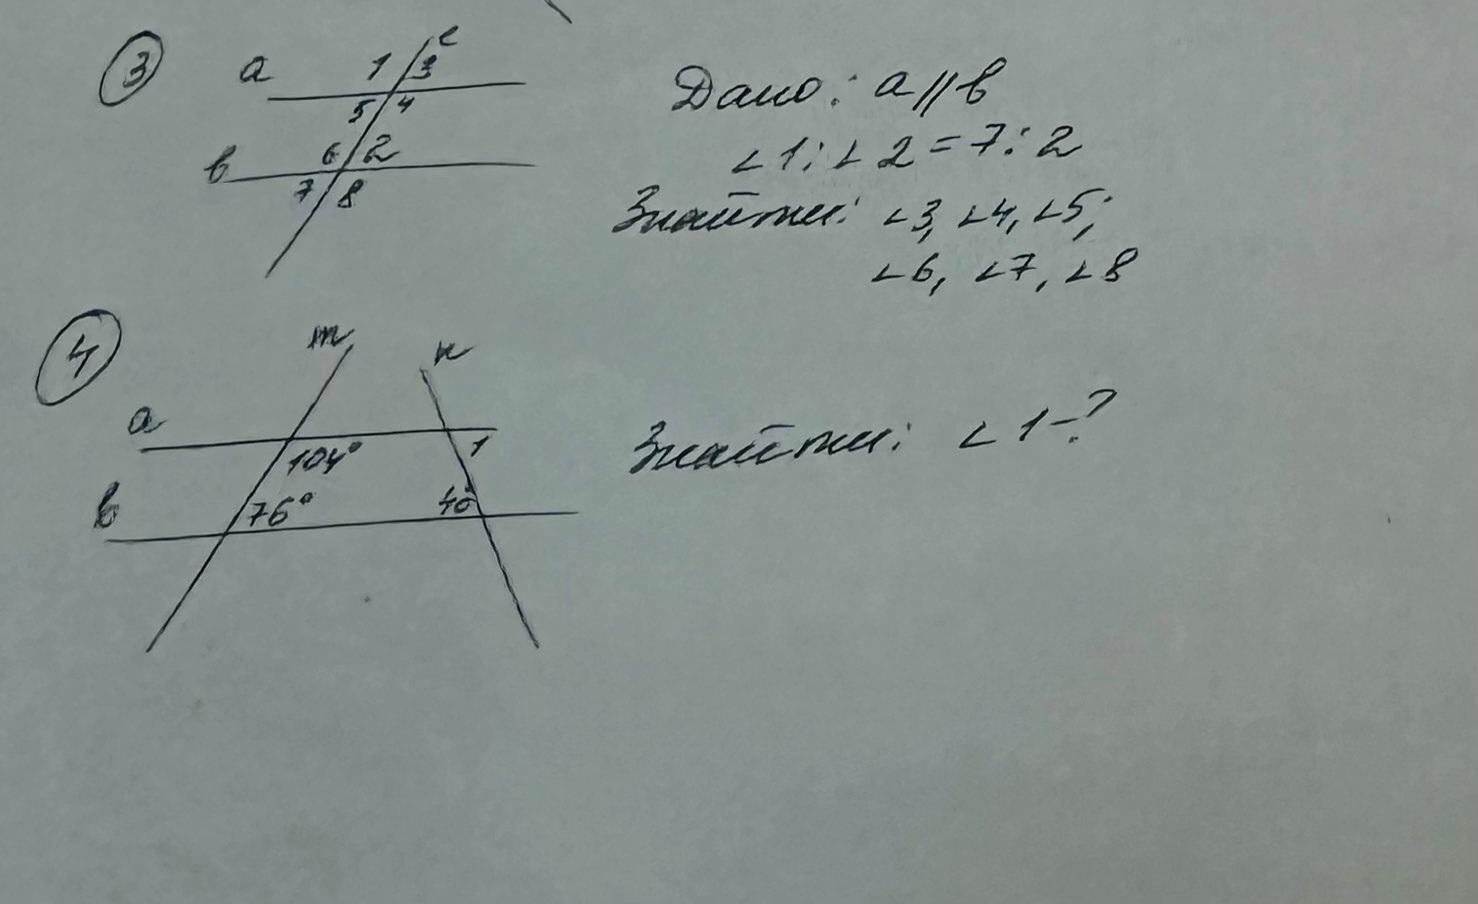 3
c
a 1 3
5 4
6 2
в
7 8
Дано: a||в
∠1:∠2=7:2
Знайти: ∠3, ∠4, ∠5;
∠6, ∠7, ∠8
4
m n
a
104° 1
в 76° 40°
Знайти: ∠1-?